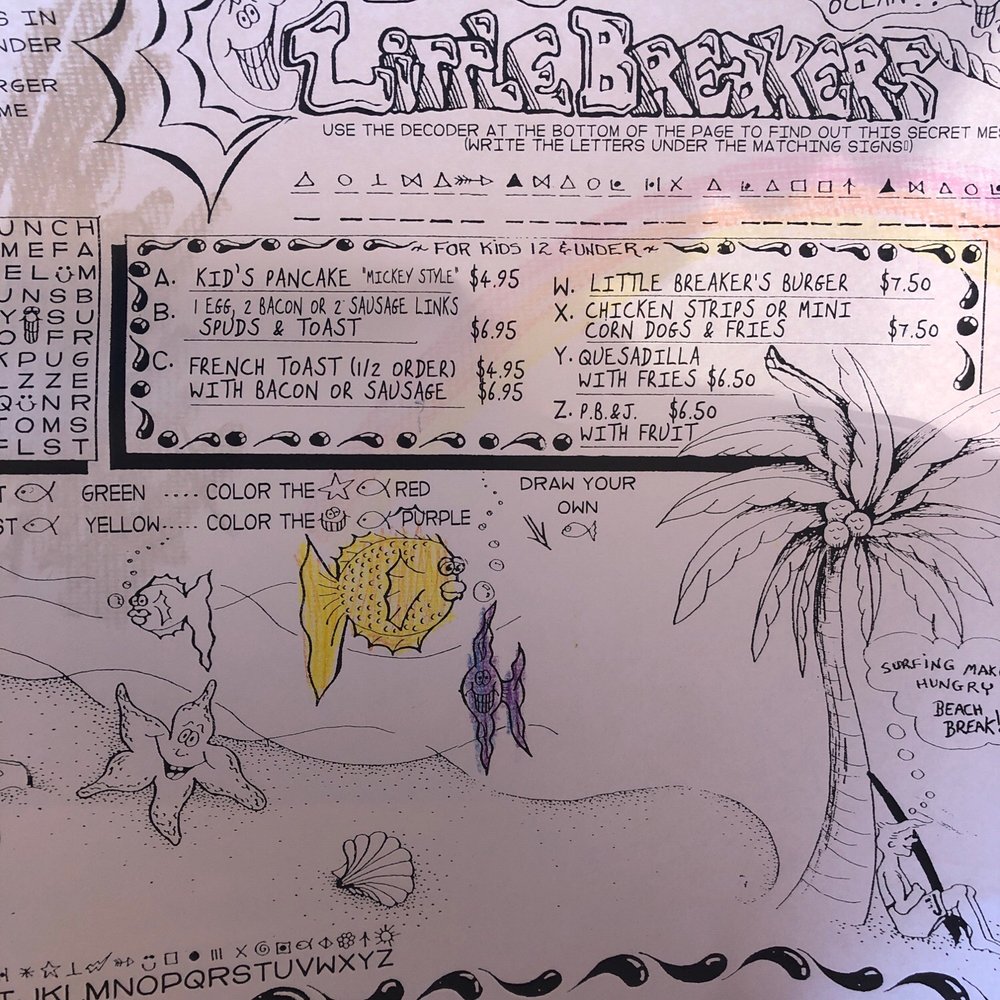 S IN
NDER
RGER
ME
OCEAN..
LITTLE BREAKERS
USE THE DECODER AT THE BOTTOM OF THE PAGE TO FIND OUT THIS SECRET MES
(WRITE THE LETTERS UNDER THE MATCHING SIGNS!)
UNCH
MEFA
EL M
UNSB
Y SU
O FR
KPUG
LZZE
Q NR
TOMS
FLST
~ FOR KIDS 12 & UNDER ~
A. KID'S PANCAKE "MICKEY STYLE" $4.95
B. 1 EGG, 2 BACON OR 2 SAUSAGE LINKS
SPUDS & TOAST $6.95
C. FRENCH TOAST (1/2 ORDER) $4.95
WITH BACON OR SAUSAGE $6.95
W. LITTLE BREAKER'S BURGER $7.50
X. CHICKEN STRIPS OR MINI
CORN DOGS & FRIES $7.50
Y. QUESADILLA
WITH FRIES $6.50
Z. P.B.&J. $6.50
WITH FRUIT
T GREEN .... COLOR THE RED
ST YELLOW..... COLOR THE PURPLE
DRAW YOUR
OWN
SURFING MAK
HUNGRY
BEACH
BREAK!
I JKLMNOPQRSTUVWXYZ